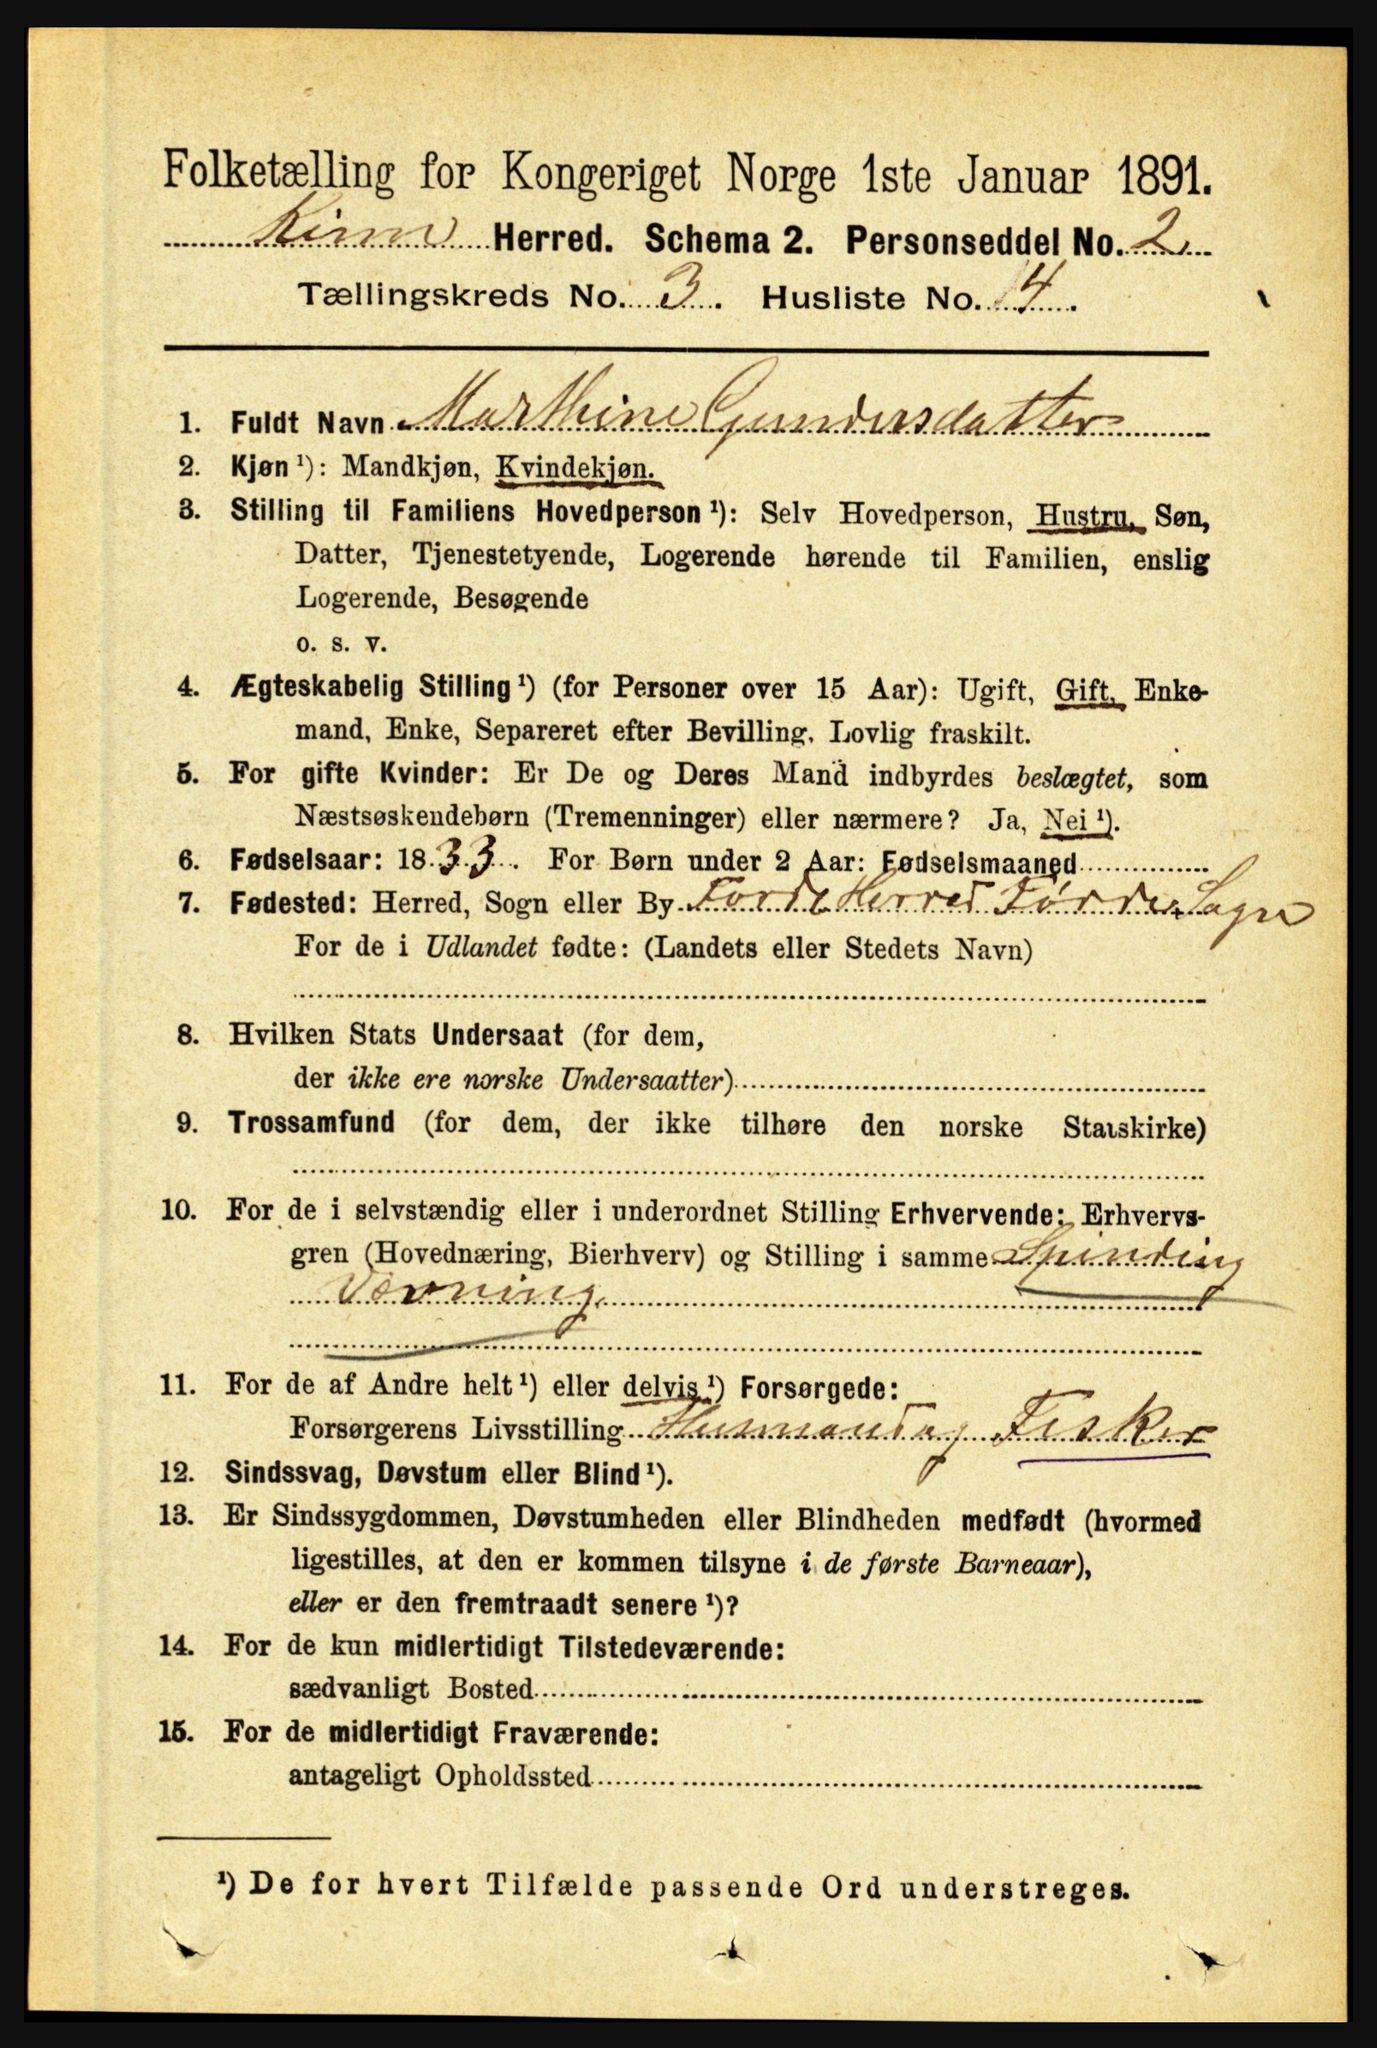 Folketælling for Kongeriget Norge 1ste Januar 1891.
Kinn Herred. Schema 2. Personseddel No. 2
Tællingskreds No. 3. Husliste No. 14.
1. Fuldt Navn Marthine Gundersdatter
2. Kjøn ¹): Mandkjøn, Kvindekjøn.
3. Stilling til Familiens Hovedperson ¹): Selv Hovedperson, Hustru, Søn,
Datter, Tjenestetyende, Logerende hørende til Familien, enslig
Logerende, Besøgende
o. s. v.
4. Ægteskabelig Stilling ¹) (for Personer over 15 Aar): Ugift, Gift, Enke-
mand, Enke, Separeret efter Bevilling, Lovlig fraskilt.
5. For gifte Kvinder: Er De og Deres Mand indbyrdes beslægtet, som
Næstsøskendebørn (Tremenninger) eller nærmere? Ja, Nei ¹).
6. Fødselsaar: 1833. For Børn under 2 Aar: Fødselsmaaned
7. Fødested: Herred, Sogn eller By Førde Herred Førde Sogn
For de i Udlandet fødte: (Landets eller Stedets Navn)
8. Hvilken Stats Undersaat (for dem,
der ikke ere norske Undersaatter)
9. Trossamfund (for dem, der ikke tilhøre den norske Statskirke)
10. For de i selvstændig eller i underordnet Stilling Erhvervende: Erhvervs-
gren (Hovednæring, Bierhverv) og Stilling i samme Spinding
Vævning
11. For de af Andre helt ¹) eller delvis ¹) Forsørgede:
Forsørgerens Livsstilling Husmand og Fisker
12. Sindssvag, Døvstum eller Blind ¹).
13. Er Sindssygdommen, Døvstumheden eller Blindheden medfødt (hvormed
ligestilles, at den er kommen tilsyne i de første Barneaar),
eller er den fremtraadt senere ¹)?
14. For de kun midlertidigt Tilstedeværende:
sædvanligt Bosted
15. For de midlertidigt Fraværende:
antageligt Opholdssted
¹) De for hvert Tilfælde passende Ord understreges.